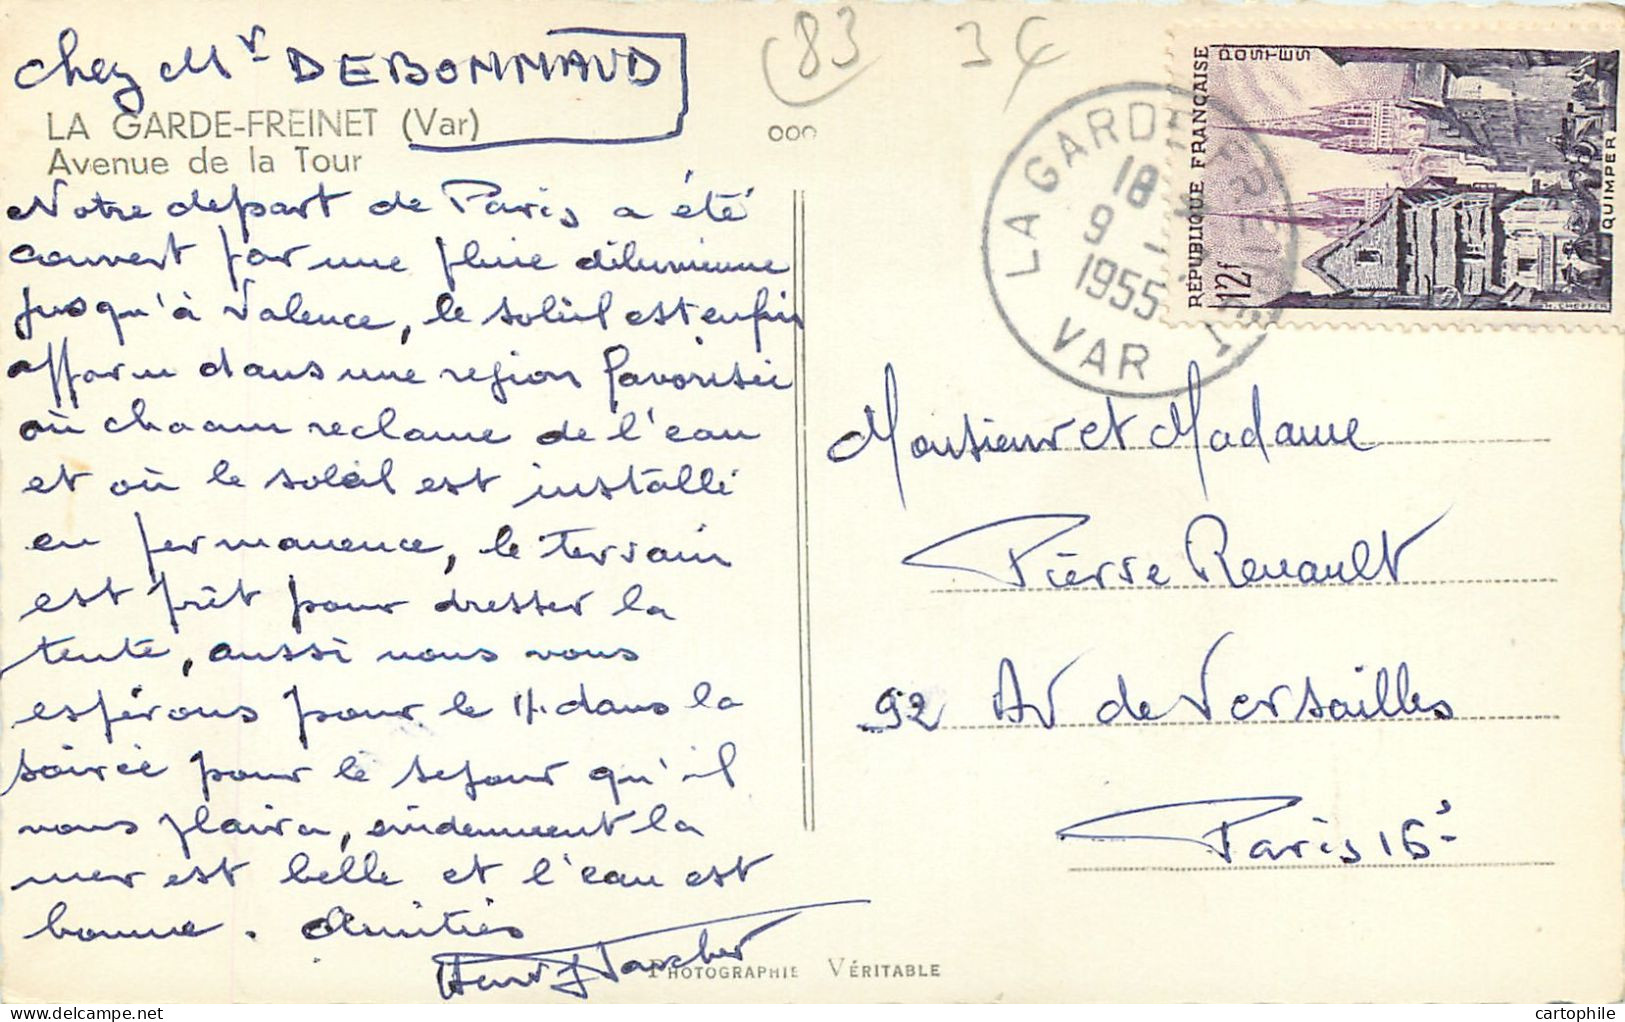 chez Mr DEBONNAUD
LA GARDE-FREINET (Var)
Avenue de la Tour
Notre depart de Paris a été
couvert par une pluie diluvienne
jusqu'à Valence, le soleil est enfin
apparu dans une region favorisée
où chacun reclame de l'eau
et où le soleil est installé
en permanence, le terrain
est prêt pour dresser la
tente, aussi nous vous
espérons pour le 14 dans la
soirée pour le sejour qu'il
vous plaira, evidemment la
mer est belle et l'eau est
bonne. Amitiés
83
000
LA GARDE FREINET
18
9
1955
VAR
RÉPUBLIQUE FRANÇAISE
POSTES
12f
QUIMPER
Monsieur et Madame
Pierre Renault
92 Av de Versailles
Paris 16e
PHOTOGRAPHIE VÉRITABLE
cartophile